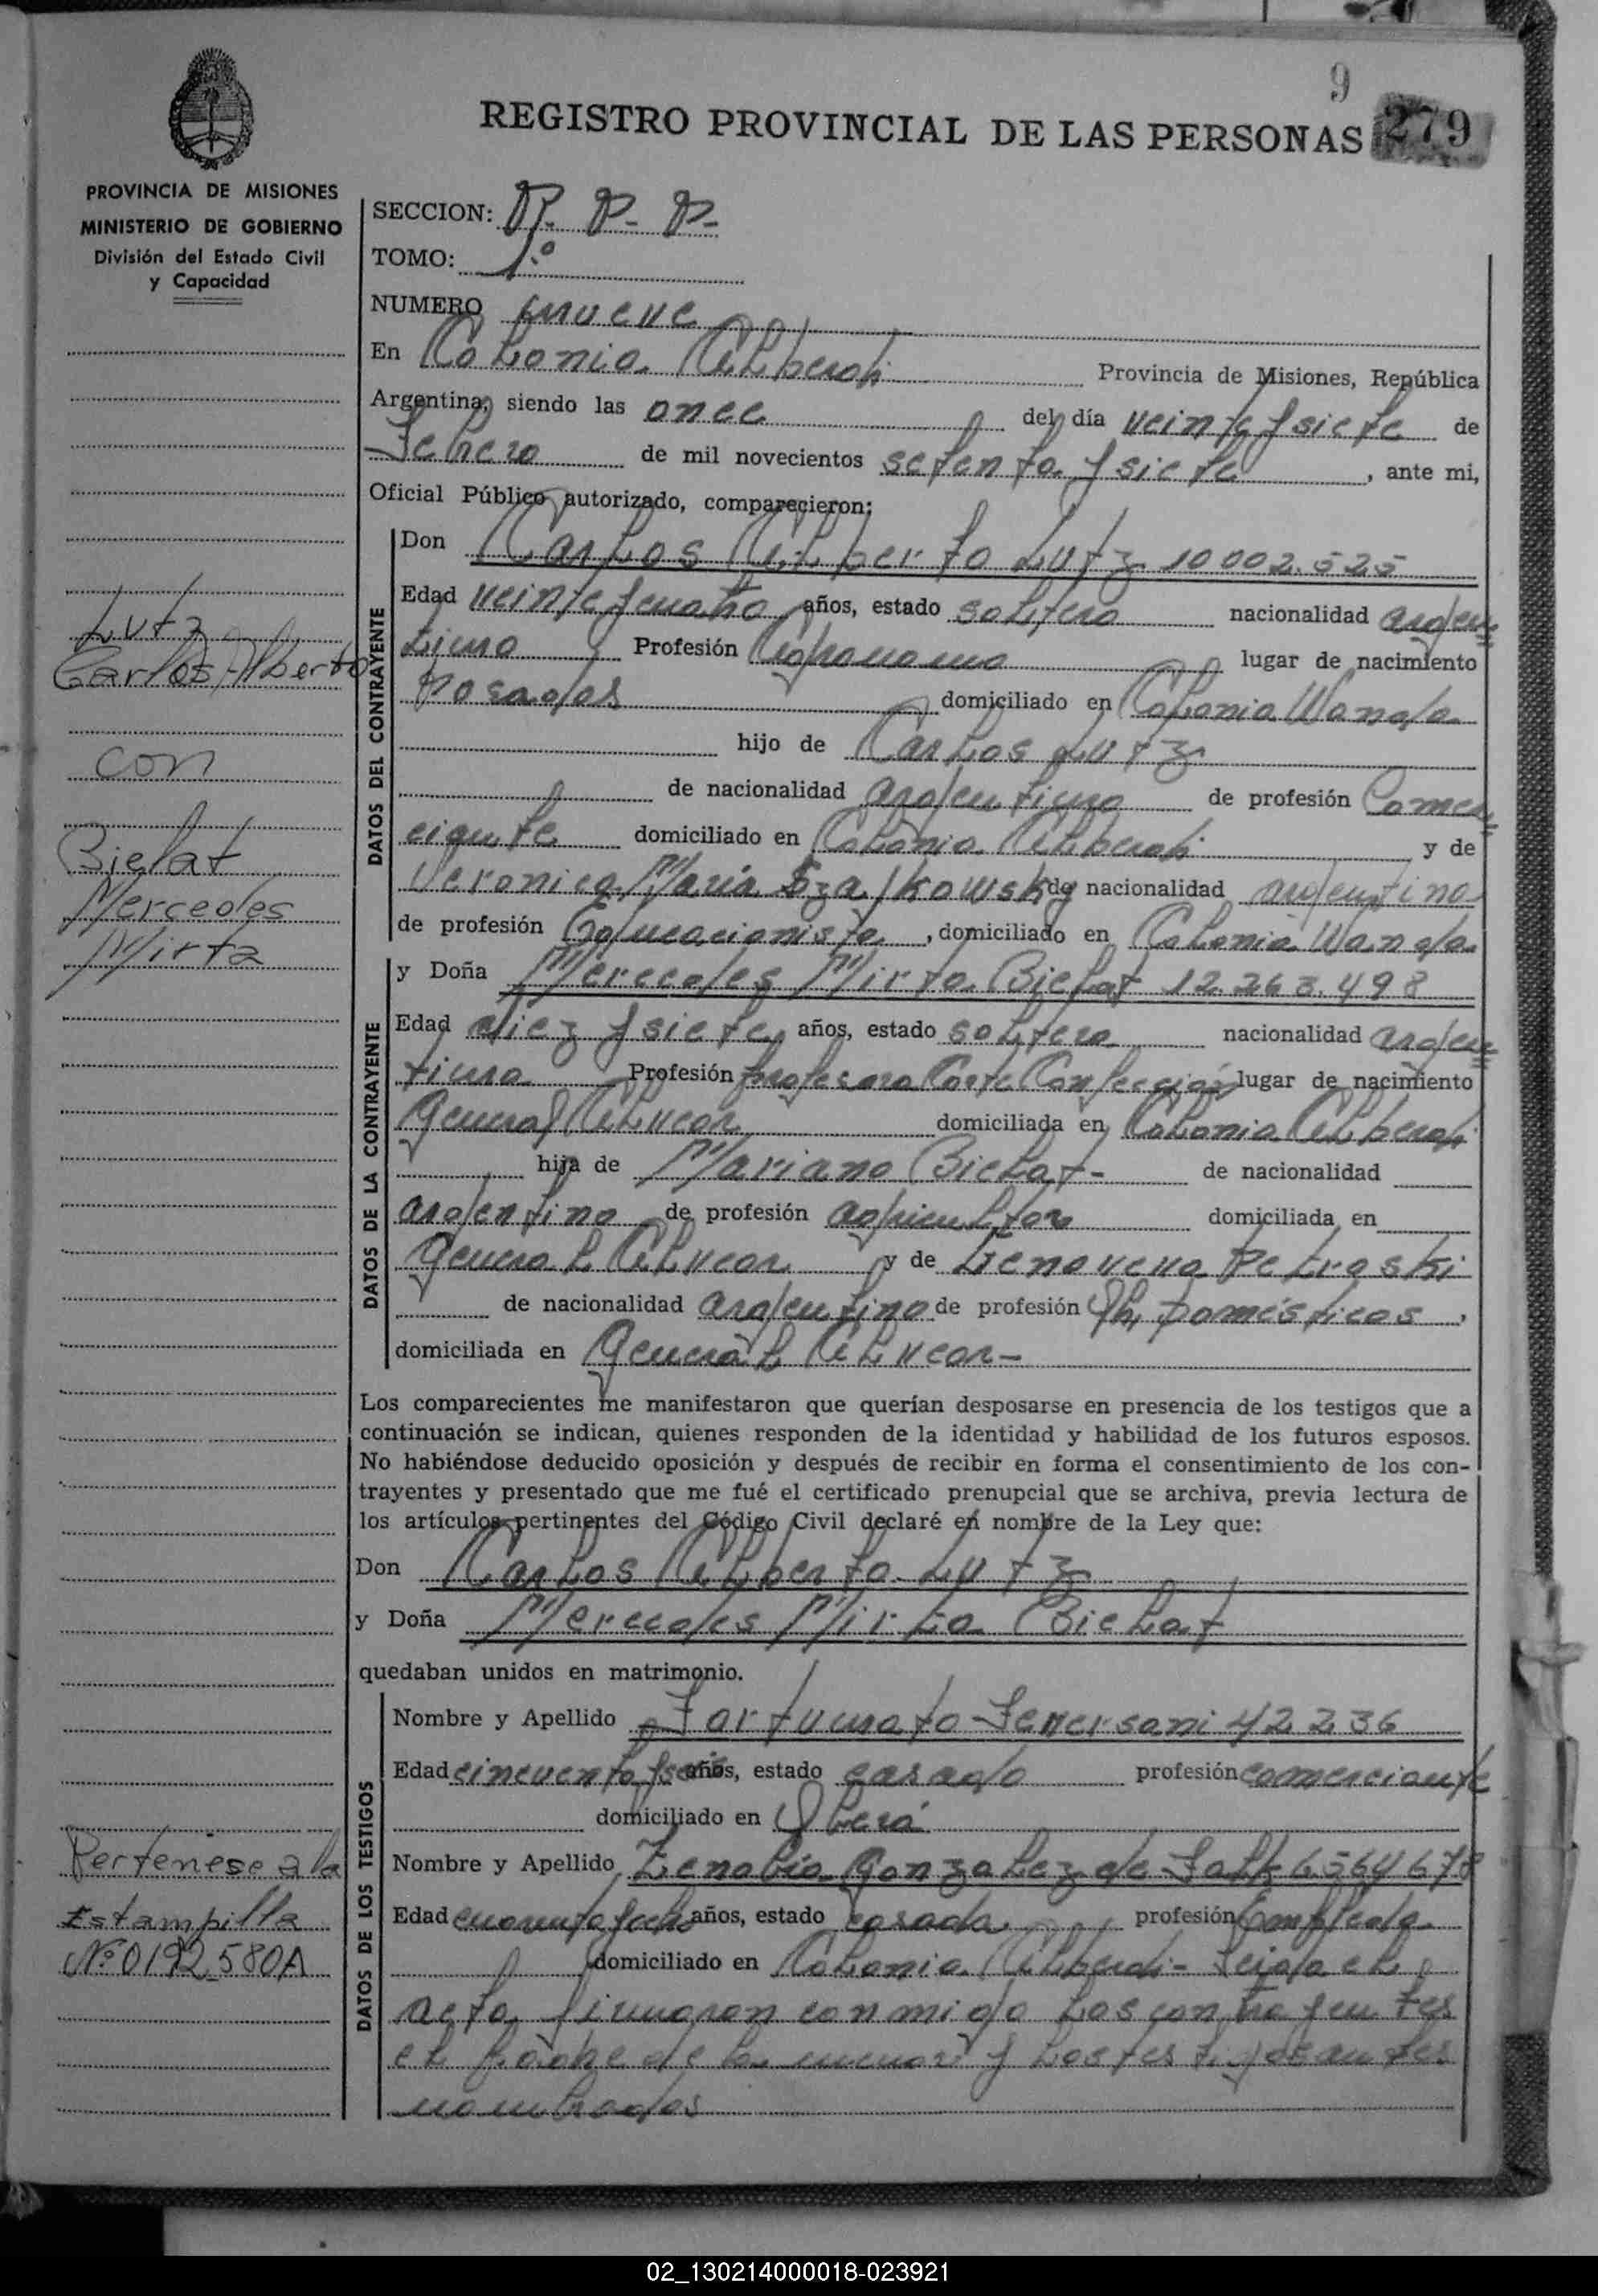 9
279
REGISTRO PROVINCIAL DE LAS PERSONAS
PROVINCIA DE MISIONES
MINISTERIO DE GOBIERNO
División del Estado Civil
y Capacidad
SECCION: R. P. P.
TOMO: 1º
NUMERO nueve
En Colonia Alberdi Provincia de Misiones, República
Argentina, siendo las once del día veinte y siete de
Febrero de mil novecientos setenta y siete, ante mi,
Oficial Público autorizado, comparecieron:
DATOS DEL CONTRAYENTE
Don Carlos Alberto Lutz 10002.525
Edad veinte y cuatro años, estado soltero nacionalidad argen
tino Profesión Agronomo lugar de nacimiento
Posadas domiciliado en Colonia Wanda
hijo de Carlos Lutz
de nacionalidad argentino de profesión Comer
ciante domiciliado en Colonia Alberdi y de
Veronica Maria Szajkowski de nacionalidad argentina
de profesión Educacionista, domiciliado en Colonia Wanda
Lutz
Carlos Alberto
con
Bielat
Mercedes
Mirta
DATOS DE LA CONTRAYENTE
y Doña Mercedes Mirta Bielat 12.263.498
Edad diez y siete años, estado soltera nacionalidad argen
tina Profesión Profesora Corte Confección lugar de nacimiento
General Alvear domiciliada en Colonia Alberdi
hija de Mariano Bielat - de nacionalidad
argentino de profesión agricultor domiciliada en
General Alvear y de Genoveva Petroski
de nacionalidad argentina de profesión Qh. Domésticos,
domiciliada en General Alvear -
Los comparecientes me manifestaron que querían desposarse en presencia de los testigos que a
continuación se indican, quienes responden de la identidad y habilidad de los futuros esposos.
No habiéndose deducido oposición y después de recibir en forma el consentimiento de los con-
trayentes y presentado que me fué el certificado prenupcial que se archiva, previa lectura de
los artículos pertinentes del Código Civil declaré en nombre de la Ley que:
Don Carlos Alberto Lutz
y Doña Mercedes Mirta Bielat
quedaban unidos en matrimonio.
DATOS DE LOS TESTIGOS
Nombre y Apellido Fortunato Feversani 42236
Edad cincuenta y seis años, estado casado profesión comerciante
domiciliado en Oberá
Nombre y Apellido Zenobia Gonzalez de Falk 6564678
Edad cuarenta y ocho años, estado casada profesión Empleada
domiciliado en Colonia Alberdi - Leida el
acta firmaron conmigo los contrayentes
el padre de la menor y los testigos antes
nombrados
Pertenese a la
Estampilla
Nº 0192580A
02_130214000018-023921